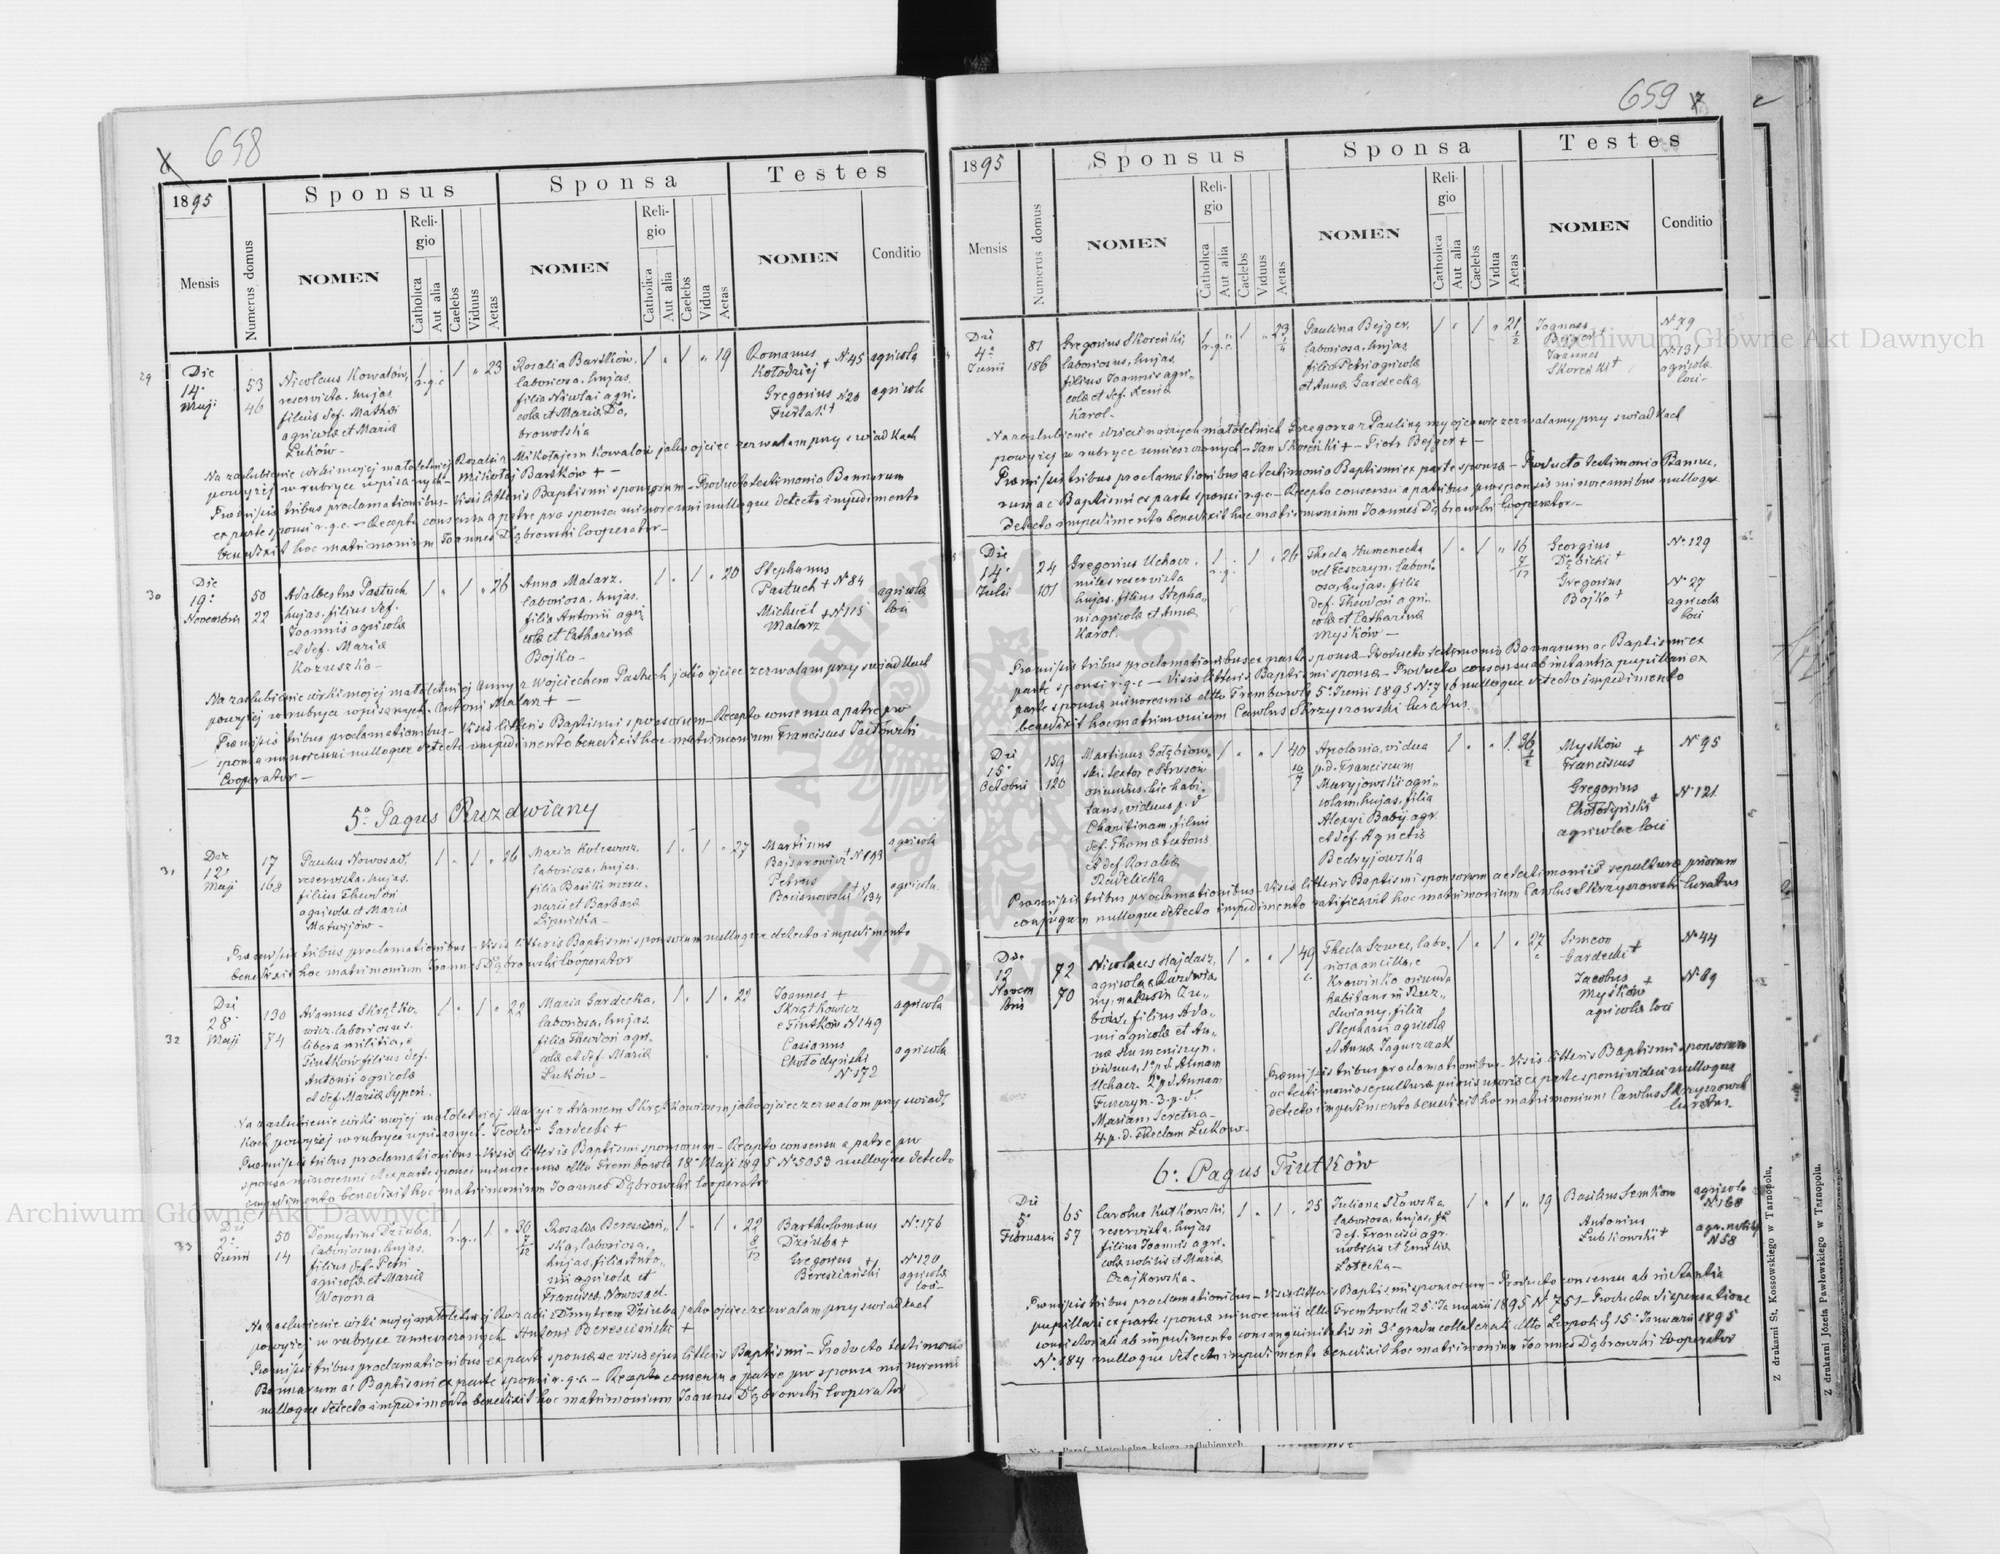 658
1895
Sponsus
Sponsa
Testes
Mensis
Numerus domus
NOMEN
Religio
Catholica
Aut alia
Caelebs
Viduus
Aetas
NOMEN
Religio
Catholica
Aut alia
Caelebs
Vidua
Aetas
NOMEN
Conditio
29
Die
14a
Maji
53
46
Nicolaus Kowalów,
reservista, hujas
filius def. Mathei
agricolae et Mariae
Łuków –
1
r.g.c
1 " 23
Rosalia Barsków,
laboriosa, hujas
filia Nicolai agri-
colae et Mariae Do,
browolska
1 " 1 " 19
Romanus
Kołodziej + N 45 agricola
Gregorius N 20 agricola
Na zaślubienie córki mojej małoletniej Rozalii z Mikołajem Kowalów jako ojciec zezwalam przy świadkach
powyżej w rubryce wpisanych – Mikołaj Barsków + –
Praemissis tribus proclamationibus – Visis litteris Baptismi sponsorum – Producto testimonio Bannorum
ex parte sponsi r.g.c. – Recepto consensu a patre pro sponsa minorenni nulloque detecto impedimento
benedixit hoc matrimonium Joannes Dąbrowski Cooperator –
30
Die
19a
Novembris
50
22
Adalbertus Pastuch
hujas, filius def.
Joannis agricolae
et def. Mariae
Kozuszka –
1 " 1 " 26
Anna Malarz,
laboriosa, hujas
filia Antonii agri
colae et Catharinae
Bojko –
1 " 1 " 20
Stephanus
Pastuch + N 84
Michael
Malarz + N 115
agricolae
loci
Na zaślubienie córki mojej małoletniej Anny z Wojciechem Pastuch jako ojciec zezwalam przy świadkach
powyżej w rubryce wpisanych – Antoni Malarz + –
Praemissis tribus proclamationibus – Visis litteris Baptismi sponsorum – Recepto consensu a patre pro
sponsa minorenni nulloque detecto impedimento benedixit hoc matrimonium Franciscus
Cooperator –
5o Pagus Ruzdwiany
31
Die
12
Maji
17
168
Paulus Nowosad,
reservista, hujas,
filius Theodori
agricolae et Mariae
Matwijów –
1 " 1 " 26
laboriosa, hujas
filia Basilii merce,
narii et Barbarae
Lipnicka –
1 " 1 " 27
Martinus
N 193
Petrus
N 134
agricola
agricola
Praemissis tribus proclamationibus – Visis litteris Baptismi sponsorum nulloque detecto impedimento
benedixit hoc matrimonium Joannes Dąbrowski Cooperator
32
Die
28a
Maji
130
74
Adamus Skrętko,
wicz, laboriosus,
libera militia, e
Tiutków filius def.
Antonii agricolae
et def. Mariae Sypeń.
1 " 1 " 22
Maria Gardecka,
laboriosa, hujas
filia Theodori agri,
colae et def. Mariae
Łuków –
1 " 1 " 22
Joannes +
Skrętkowicz
e Tiutków N 149
Casianus
Chołodyński
N 172
agricola
agricola
Na zaślubienie córki mojej małoletniej Maryi z Adamem Skrętkowiczem jako ojciec zezwalam przy świad,
kach powyżej w rubryce wpisanych – Teodor Gardecki +
Praemissis tribus proclamationibus – Visis litteris Baptismi sponsorum – Recepto consensu a patre pro
sponsa minorenni et ex parte sponsi minorennis dtto Trembowla 18a Maji 1895 N 5053 nulloque detecto
impedimento benedixit hoc matrimonium Joannes Dąbrowski Cooperator
33
Die
2a
Junii
50
14
Demytrius Dziuba,
laboriosus, hujas,
filius def. Petri
agricolae et Mariae
Worona
1
r.g.
1 " 30
7
12
Rosalia Bereściań,
ska, laboriosa,
hujas, filia Anto,
nii agricolae et
Francisca Nowosad.
1 " 1 " 22
8
12
Bartholomaeus
Dziuba +
Gregorius
Bereściański +
N 176
N 120
agricolae
loci –
Na zaślubienie córki mojej małoletniej Rozalii z Dmytrem Dziuba jako ojciec zezwalam przy świadkach
powyżej w rubryce umieszczonych Antoni Bereściański +
Praemissis tribus proclamationibus ex parte sponsae ac visis ejus litteris Baptismi – Producto testimonio
Bannorum ac Baptismi ex parte sponsi r.g.c. – Recepto consensu a patre pro sponsa minorenni
nulloque detecto impedimento benedixit hoc matrimonium Joannes Dąbrowski Cooperator
659
1895
Sponsus
Sponsa
Testes
Mensis
Numerus domus
NOMEN
Religio
Catholica
Aut alia
Caelebs
Viduus
Aetas
NOMEN
Religio
Catholica
Aut alia
Caelebs
Vidua
Aetas
NOMEN
Conditio
Die
4a
Junii
81
186
Gregorius Skoreński,
laboriosus, hujas,
filius Joannis agri,
colae et def. Xenia
Karol –
1
r.g.c
1 " 23
Paulina Bejger,
laboriosa, hujas,
filia Petri agricolae
et Annae Gardecka
1 " 1 " 21
Joannes
Bejger +
Joannes
Skoreński +
N 79
N 131
agricolae
loci –
Na zaślubienie dzieci naszych małoletnich Grzegorza z Pauliną my ojcowie zezwalamy przy świadkach
powyżej w rubryce umieszczonych – Jan Skoreński + – Piotr Bejger + –
Praemissis tribus proclamationibus ac testimonio Baptismi ex parte sponsae – Producto testimonio Banno,
rum ac Baptismi ex parte sponsi r.g.c – Recepto consensu a patribus pro sponsis minorennibus nulloque
detecto impedimento benedixit hoc matrimonium Joannes Dąbrowski Cooperator –
Die
14a
Julii
24
101
Gregorius Uchacz,
miles reservista
hujas, filius Stepha,
ni agricolae et Annae
Karol –
1
r.g.
1 " 26
Thecla Humenecka
vel Feszczyn, labori
osa, hujas, filia
def. Theodori agri,
colae et Catharinae
Myśków –
1 " 1 " 16
7
12
Georgius
Dębicki +
Gregorius
Bojko +
N 129
N 27
agricolae
loci
Praemissis tribus proclamationibus ex parte sponsae – Producto testimonio Bannorum ac Baptismi ex
parte sponsi r.g.c – Visis litteris Baptismi sponsae – Producto consensu ab instantia pupillari ex
parte sponsae minorennis dtto Trembowla 5a Junii 1895 N 716 nulloque detecto impedimento
benedixit hoc matrimonium Carolus Skrzyszowski Curatus.
Die
15a
Octobris
159
120
Martinus Gołębiow,
ski, textor e Strusów
oriundus, hic habi,
tans, viduus p. d.
Charitinam, filius
def. Thomae textoris
et def. Rosaliae
Rudelicka
1 " " 1 40
Apolonia, vidua
p. d. Franciscum
Maryjowski agri,
colam, hujas, filia
Alexii Babij agr.
et def. Agnetis
Bedryjowska
1 " " 1 36
Myśków +
Franciscus
Gregorius
Chołodyński +
agricolae loci
N 95
N 121
Praemissis tribus proclamationibus – Visis litteris Baptismi sponsorum ac testimoniis sepulturae priorum
conjugum nulloque detecto impedimento ratificavit hoc matrimonium Carolus Skrzyszowski Curatus
Die
12
Novem
bris
72
70
Nicolaus Hajdasz,
agricola e Ruzdwia
ny, natus in Zu,
bow, filius Ada,
mi agricolae et An,
nae Humeniszyn,
viduus, 1o p. d. Annam
Uchacz – 2o p. d. Annam
Fuszczyn – 3. p. d.
Mariam Seretna –
4. p. d. Theclam Łuków –
1 " " 1 49
Thecla Szwec, labo,
riosa ancilla, e
Krowinka oriunda
habitans in Ruz,
dwiany, filia
Stephani agricolae
et Annae Jaguszczak
1 " 1 " 27
Simeon
Gardecki +
Jacobus +
Myśków
agricolae loci
N 44
N 69
Praemissis tribus proclamationibus – Visis litteris Baptismi sponsorum
ac testimonio sepulturae prioris uxoris ex parte sponsi vidui nulloque
detecto impedimento benedixit hoc matrimonium Carolus Skrzyszowski
Curatus.
6o Pagus Tiutków
Die
5a
Februarii
65
57
Carolus Kutkowski,
reservista, hujas
filius Joannis agri,
colae nobilis et Mariae
Czajkowska –
1 " 1 " 25
Juliana Sławska,
laboriosa, hujas, fa
def. Francisci agr.
nobilis et Emiliae
Łotecka –
1 " 1 " 19
Basilius Semków
Antonius
Lubkowski +
agricola
N 168
agr. nobilis
N 58
Praemissis tribus proclamationibus – Visis litteris Baptismi sponsorum – Producto consensu ab instantia
pupillari ex parte sponsae minorennis dtto Trembowla 25a Januarii 1895 N 751 – Producta dispensatione
consistoriali ab impedimento consanguinitatis in 3o gradu collaterali dtto Leopoli d. 15a Januarii 1895
N 184 nulloque detecto impedimento benedixit hoc matrimonium Joannes Dąbrowski Cooperator
Z drukarni St. Kossowskiego w Tarnopolu.
Z drukarni Józefa Pawłowskiego w Tarnopolu.
Archiwum Główne Akt Dawnych
Archiwum Główne Akt Dawnych